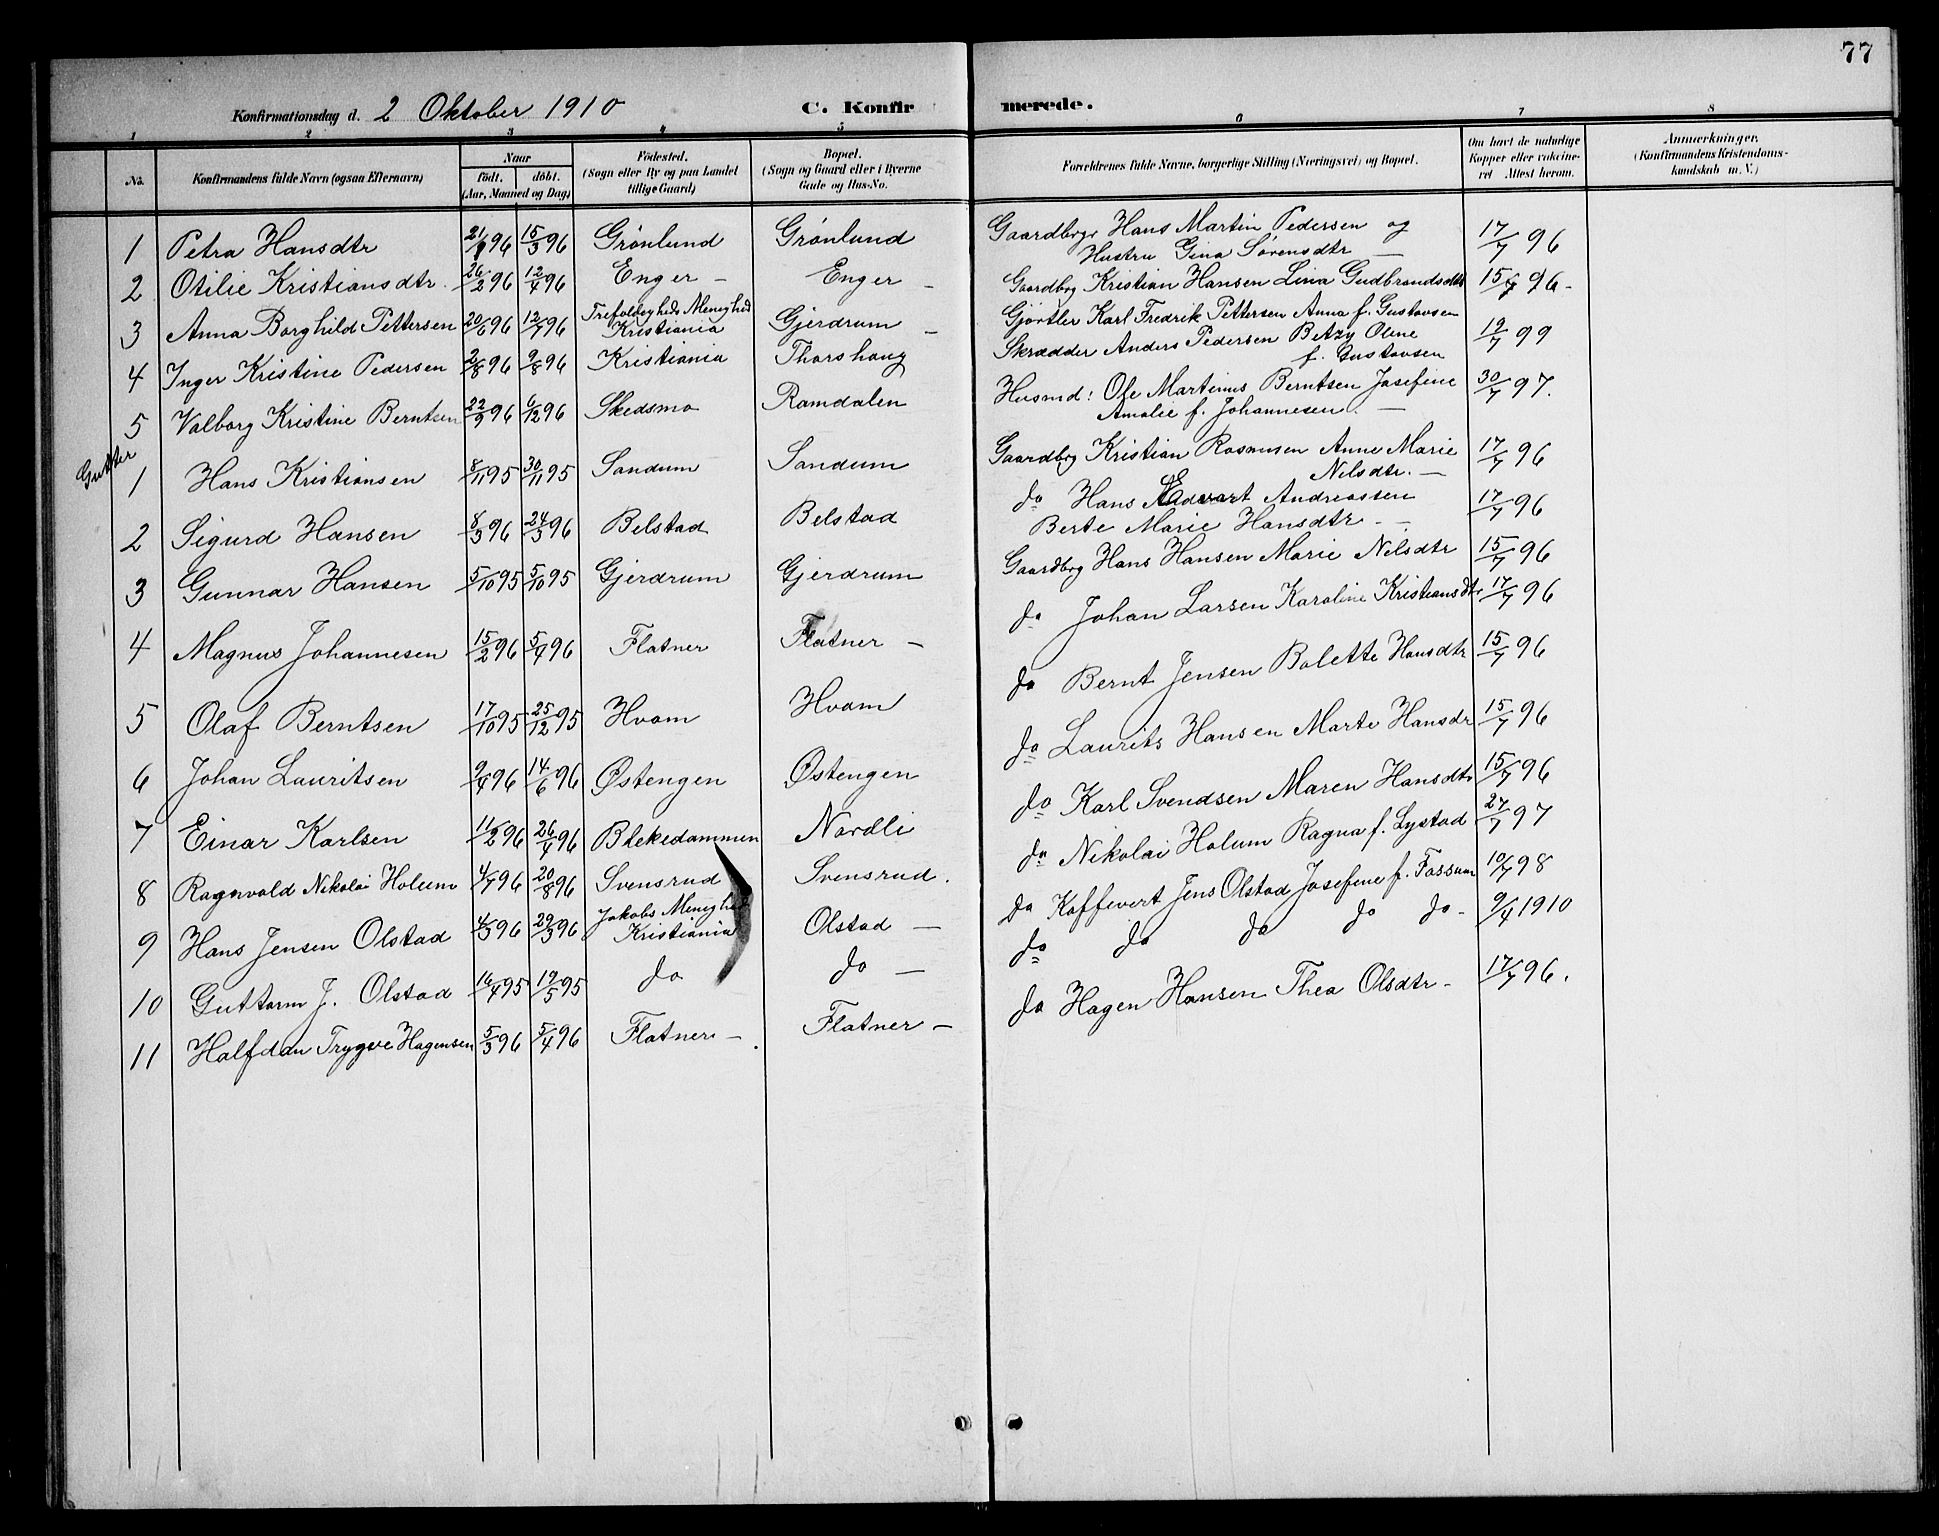 77
Konfirmationsdag d. 2 Oktober 1910 C. Konfirmerede.
1 2 3 4 5 6 7 8
No. Konfirmandens fulde Navn (ogsaa Efternavn) Naar födt. döbt. (Aar, Maaned og Dag) Födested. (Sogn eller By og paa Landet tillige Gaard) Bopæl. (Sogn og Gaard eller i Byerne Gade og Hus-No. Forældrenes fulde Navne, borgerlige Stilling (Næringsvei) og Bopæl. Om havt de naturlige Kopper eller vakcineret Attest herom. Anmærkninger. (Konfirmandens Kristendomskundskab m. V.)
1 Petra Hansdtr 21/1 96 15/3 96 Grönlund Grönlund Gaardbgr Hans Martin Pedersen og Hustru Gina Sörensdtr — 17/7 96
2 Otilie Kristiansdtr. 26/2 96 12/4 96 Enger — Enger — Gaardbg Kristian Hansen Lina Gudbrandsdtr 15/7 96 -
3 Anna Borghild Pettersen 20/6 96 12/7 96 Trefoldigheds Menighed Kristiania Gjerdrum — Gjörtler Karl Fredrik Pettersen Anna f. Gustavsen
4 Inger Kristine Pedersen 2/8 96 9/8 96 Kristiania Thorshaug Skrædder Anders Pedersen Betzy Oline f. Gustavsen 19/7 99
5 Valborg Kristine Berntsen 22/9 96 6/12 96 Skedsmo Ramdalen Husmd: Ole Martinus Berntsen Josefine Amalie f. Johannesen. — 30/7 97.
Gutter
1 Hans Kristiansen 8/11 95 30/11 95 Sandum Sandum Gaardbg Kristian Rasmusen Anne Marie Nilsdtr. — 17/7 96
2 Sigurd Hansen 8/3 96 24/3 96 Belstad Belstad do Hans Edvart Andreassen Berte Marie Hansdtr — 17/7 96
3 Gunnar Hansen 5/10 95 5/10 95 Gjerdrum Gjerdrum Gaardbg Hans Hansen Marie Nilsdtr 15/7 96
4 Magnus Johannesen 15/2 96 5/4 96 Flatner Flatner — do Johan Larsen Karoline Kristiansdtr 17/7 96
5 Olaf Berntsen 17/10 95 25/12 95 Hvam Hvam do Bernt Jensen Bolette Hansdtr 15/7 96
6 Johan Lauritsen 9/4 96 14/6 96 Östengen Östengen do Laurits Hansen Marte Hansdr 15/7 96
7 Einar Karlsen 11/2 96 26/4 96 Blekedammen Nordli do Karl Svendsen Maren Hansdtr 15/7 96
8 Ragnvald Nikolai Holum 4/7 96 20/8 96 Svensrud Svensrud. do Nikolai Holum Ragna f. Lystad 27/7 97
9 Hans Jensen Olstad 4/3 96 29/3 96 Jakobs Menighed Kristiania Olstad — do Kaffevert Jens Olstad Josefine f. Fossum 10/7 98
10 Guttorm J. Olstad 16/4 95 19/5 95 do do — do do do do do - 9/4 1910
11 Halfdan Trygve Hagensen 5/3 96 5/4 96 Flatner — Flatner — do Hagen Hansen Thea Olsdtr - 17/7 96.